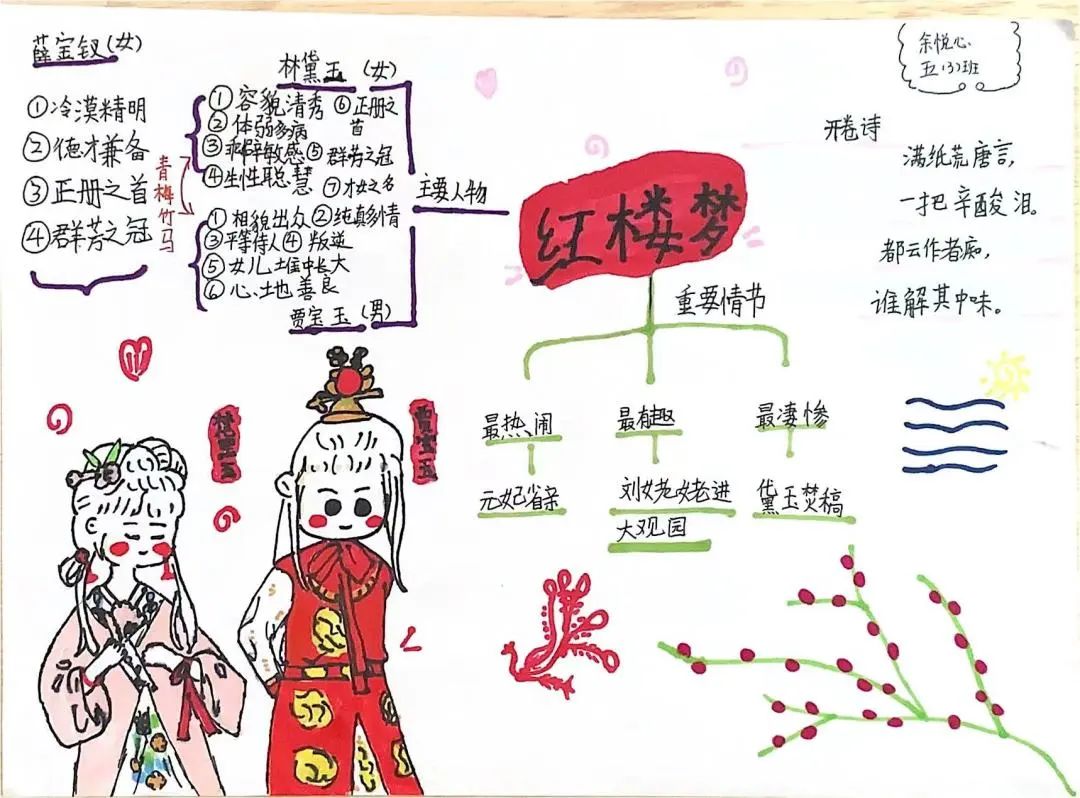 薛宝钗(女)
①冷漠精明
②德才兼备
③正册之首
④群芳之冠
林黛玉(女)
①容貌清秀
②体弱多病
③乖僻敏感
④生性聪慧
⑤群芳之冠
⑥正册之
首
⑦才女之名
青梅竹马
①相貌出众 ②纯真多情
③平等待人 ④叛逆
⑤女儿堆中长大
⑥心地善良
贾宝玉(男)
主要人物
红楼梦
重要情节
最热闹
元妃省亲
最有趣
刘姥姥进
大观园
最凄惨
黛玉焚稿
余悦心
五(3)班
开卷诗
满纸荒唐言,
一把辛酸泪。
都云作者痴,
谁解其中味。
林黛玉
贾宝玉